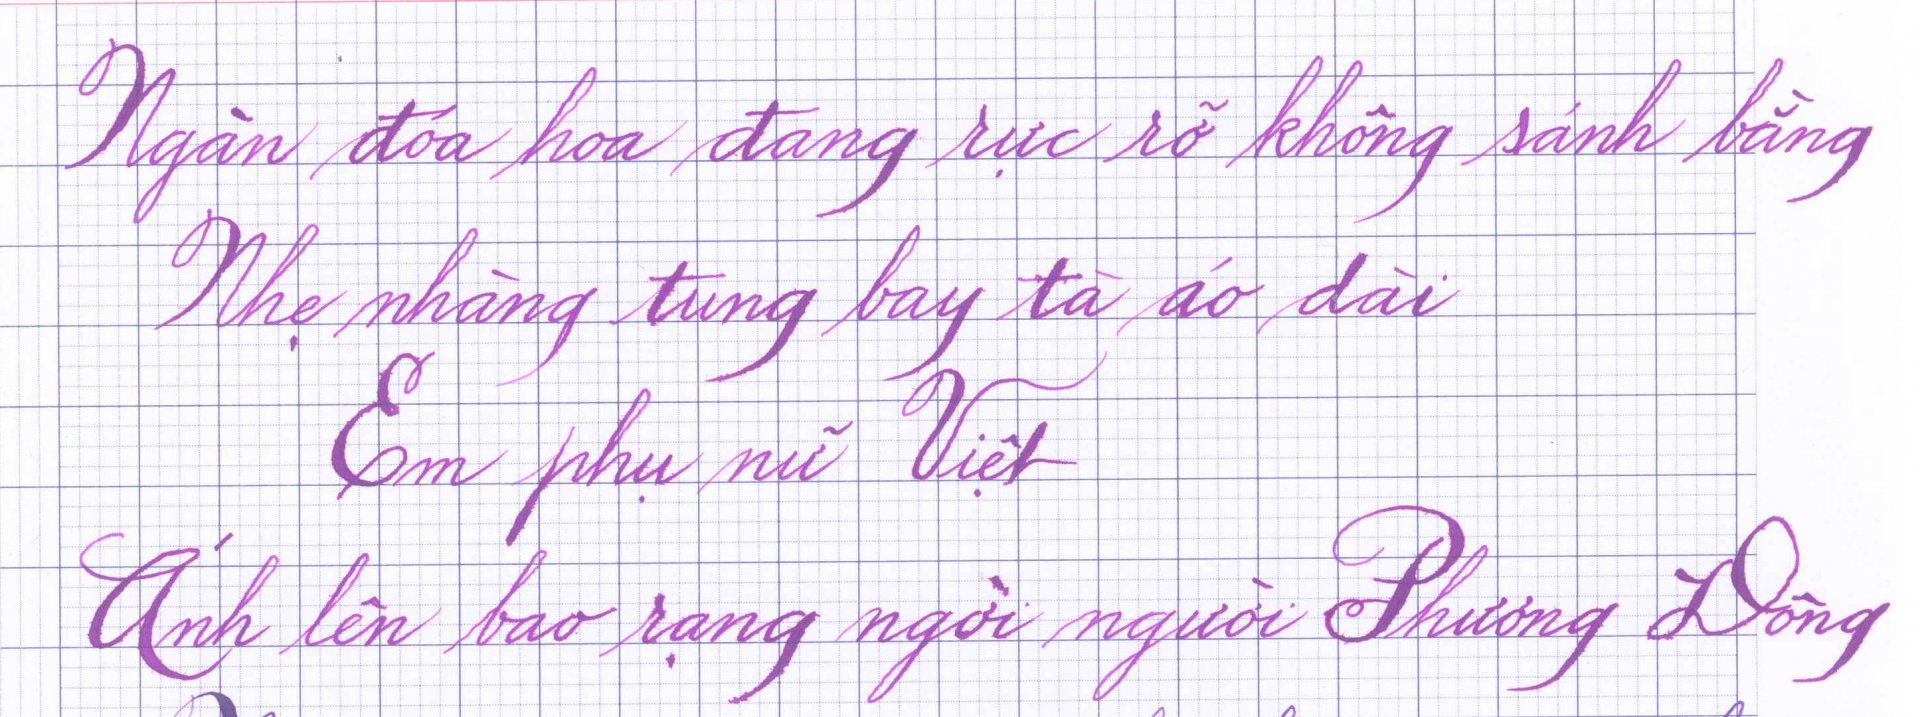 Ngàn đóa hoa đang rực rỡ không sánh bằng
Nhẹ nhàng tung bay tà áo dài
Em phụ nữ Việt
Ánh lên bao rạng ngời người Phương Đông